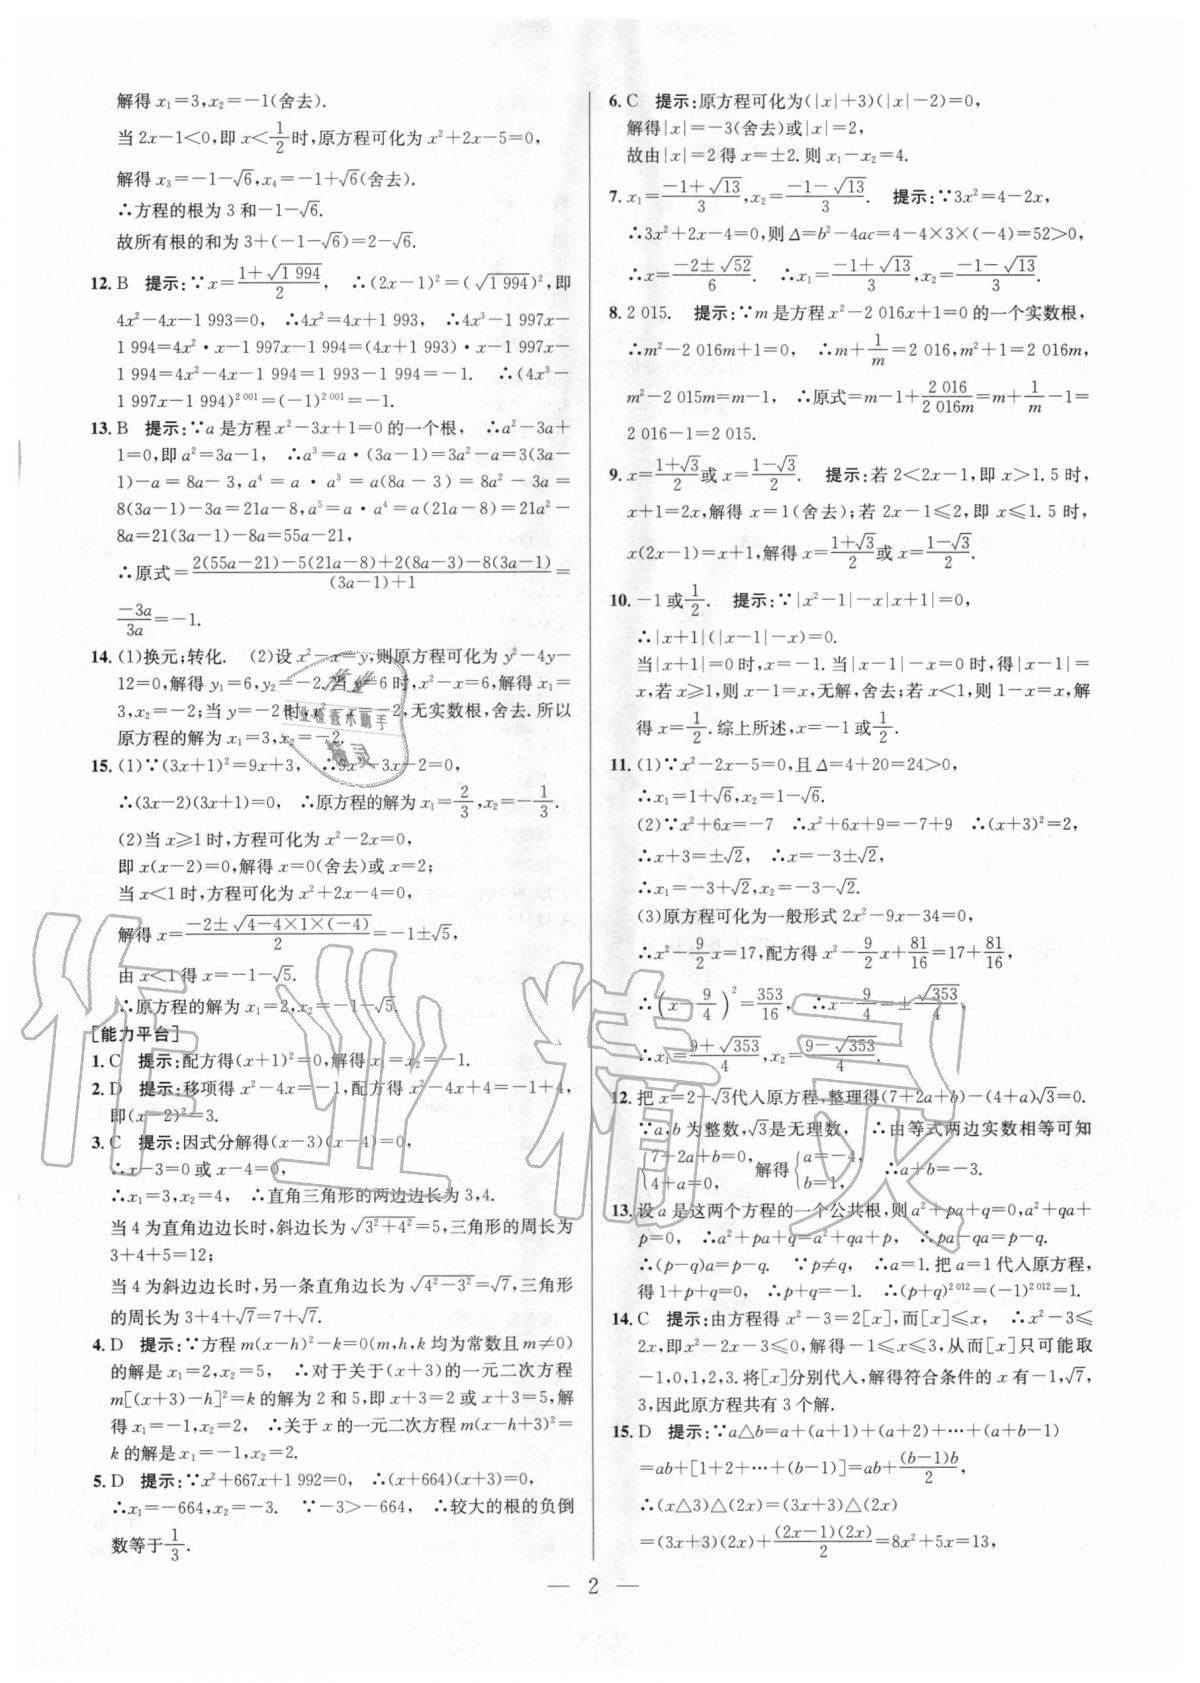 解得 x₁=3,x₂=-1(舍去).
当 2x-1<0,即 x<1/2时,原方程可化为 x²+2x-5=0,
解得 x₃=-1-√6,x₄=-1+√6(舍去).
∴方程的根为 3 和-1-√6.
故所有根的和为 3+(-1-√6)=2-√6.
12. B 提示:∵x=(1+√1 994)/2, ∴(2x-1)²=(√1 994)²,即
4x²-4x-1 993=0, ∴4x²=4x+1 993, ∴4x³-1 997x-
1 994=4x²·x-1 997x-1 994=(4x+1 993)·x-1 997x-
1 994=4x²-4x-1 994=1 993-1 994=-1. ∴(4x³-
1 997x-1 994)²⁰⁰¹=(-1)²⁰⁰¹=-1.
13. B 提示:∵a 是方程 x²-3x+1=0 的一个根, ∴a²-3a+
1=0,即 a²=3a-1, ∴a³=a·(3a-1)=3a²-a=3(3a-
1)-a=8a-3,a⁴=a·a³=a(8a-3)=8a²-3a=
8(3a-1)-3a=21a-8,a⁵=a·a⁴=a(21a-8)=21a²-
8a=21(3a-1)-8a=55a-21,
∴原式=(2(55a-21)-5(21a-8)+2(8a-3)-8(3a-1))/((3a-1)+1)=
-3a/3a=-1.
14. (1)换元;转化. (2)设 x²-x=y,则原方程可化为 y²-4y-
12=0,解得 y₁=6,y₂=-2.当 y=6 时,x²-x=6,解得 x₁=
3,x₂=-2;当 y=-2 时,x²-x=-2,无实数根,舍去.所以
原方程的解为 x₁=3,x₂=-2.
15. (1)∵(3x+1)²=9x+3, ∴9x²-3x-2=0,
∴(3x-2)(3x+1)=0, ∴原方程的解为 x₁=2/3,x₂=-1/3.
(2)当 x⩾1 时,方程可化为 x²-2x=0,
即 x(x-2)=0,解得 x=0(舍去)或 x=2;
当 x<1 时,方程可化为 x²+2x-4=0,
解得 x=(-2±√(4-4×1×(-4)))/2=-1±√5,
由 x<1 得 x=-1-√5.
∴原方程的解为 x₁=2,x₂=-1-√5.
[能力平台]
1. C 提示:配方得(x+1)²=0,解得 x₁=x₂=-1.
2. D 提示:移项得 x²-4x=-1,配方得 x²-4x+4=-1+4,
即(x-2)²=3.
3. C 提示:因式分解得(x-3)(x-4)=0,
∴x-3=0 或 x-4=0,
∴x₁=3,x₂=4, ∴直角三角形的两边边长为 3,4.
当 4 为直角边边长时,斜边长为 √(3²+4²)=5,三角形的周长为
3+4+5=12;
当 4 为斜边边长时,另一条直角边长为 √(4²-3²)=√7,三角形
的周长为 3+4+√7=7+√7.
4. D 提示:∵方程 m(x-h)²-k=0(m,h,k 均为常数且 m≠0)
的解是 x₁=2,x₂=5, ∴对于关于(x+3)的一元二次方程
m[(x+3)-h]²=k 的解为 2 和 5,即 x+3=2 或 x+3=5,解
得 x₁=-1,x₂=2, ∴关于 x 的一元二次方程 m(x-h+3)²=
k 的解是 x₁=-1,x₂=2.
5. D 提示:∵x²+667x+1 992=0, ∴(x+664)(x+3)=0,
∴x₁=-664,x₂=-3. ∵-3>-664, ∴较大的根的负倒
数等于1/3.
6. C 提示:原方程可化为(|x|+3)(|x|-2)=0,
解得|x|=-3(舍去)或|x|=2,
故由|x|=2 得 x=±2.则 x₁-x₂=4.
7. x₁=(-1+√13)/3,x₂=(-1-√13)/3. 提示:∵3x²=4-2x,
∴3x²+2x-4=0,则 Δ=b²-4ac=4-4×3×(-4)=52>0,
∴x=(-2±√52)/6. ∴x₁=(-1+√13)/3,x₂=(-1-√13)/3.
8. 2 015. 提示:∵m 是方程 x²-2 016x+1=0 的一个实数根,
∴m²-2 016m+1=0, ∴m+1/m=2 016,m²+1=2 016m,
m²-2 015m=m-1, ∴原式=m-1+2 016/2 016m=m+1/m-1=
2 016-1=2 015.
9. x=(1+√3)/2或 x=(1-√3)/2 提示:若 2<2x-1,即 x>1.5 时,
x+1=2x,解得 x=1(舍去);若 2x-1⩽2,即 x⩽1.5 时,
x(2x-1)=x+1,解得 x=(1+√3)/2或 x=(1-√3)/2.
10. -1 或1/2. 提示:∵|x²-1|-x|x+1|=0,
∴|x+1|(|x-1|-x)=0.
当|x+1|=0 时,x=-1.当|x-1|-x=0 时,得|x-1|=
x,若 x⩾1,则 x-1=x,无解,舍去;若 x<1,则 1-x=x,解
得 x=1/2.综上所述,x=-1 或1/2.
11. (1)∵x²-2x-5=0,且 Δ=4+20=24>0,
∴x₁=1+√6,x₂=1-√6.
(2)∵x²+6x=-7 ∴x²+6x+9=-7+9 ∴(x+3)²=2,
∴x+3=±√2, ∴x=-3±√2,
∴x₁=-3+√2,x₂=-3-√2.
(3)原方程可化为一般形式 2x²-9x-34=0,
∴x²-9/2x=17,配方得 x²-9/2x+81/16=17+81/16,
∴(x-9/4)²=353/16, ∴x-9/4=±√353/4,
∴x₁=(9+√353)/4,x₂=(9-√353)/4.
12. 把 x=2+√3代入原方程,整理得(7+2a+b)-(4+a)√3=0.
∵a,b 为整数,√3是无理数, ∴由等式两边实数相等可知
{7+2a+b=0, 4+a=0, 解得{a=-4, b=1, ∴a+b=-3.
13. 设 a 是这两个方程的一个公共根,则 a²+pa+q=0,a²+qa+
p=0, ∴a²+pa+q=a²+qa+p, ∴pa-qa=p-q.
∴(p-q)a=p-q. ∵p≠q, ∴a=1.把 a=1 代入原方程,
得 1+p+q=0, ∴p+q=-1. ∴(p+q)²⁰¹²=(-1)²⁰¹²=1.
14. C 提示:由方程得 x²-3=2[x],而[x]⩽x, ∴x²-3⩽
2x,即x²-2x-3⩽0,解得-1⩽x⩽3,从而[x]只可能取
-1,0,1,2,3.将[x]分别代入,解得符合条件的 x 有-1,√7,
3,因此原方程共有 3 个解.
15. D 提示:∵a△b=a+(a+1)+(a+2)+…+(a+b-1)
=ab+[1+2+…+(b-1)]=ab+(b-1)b/2,
∴(x△3)△(2x)=(3x+3)△(2x)
=(3x+3)(2x)+(2x-1)(2x)/2=8x²+5x=13,
— 2 —
作业精灵
作业检查小助手
精灵